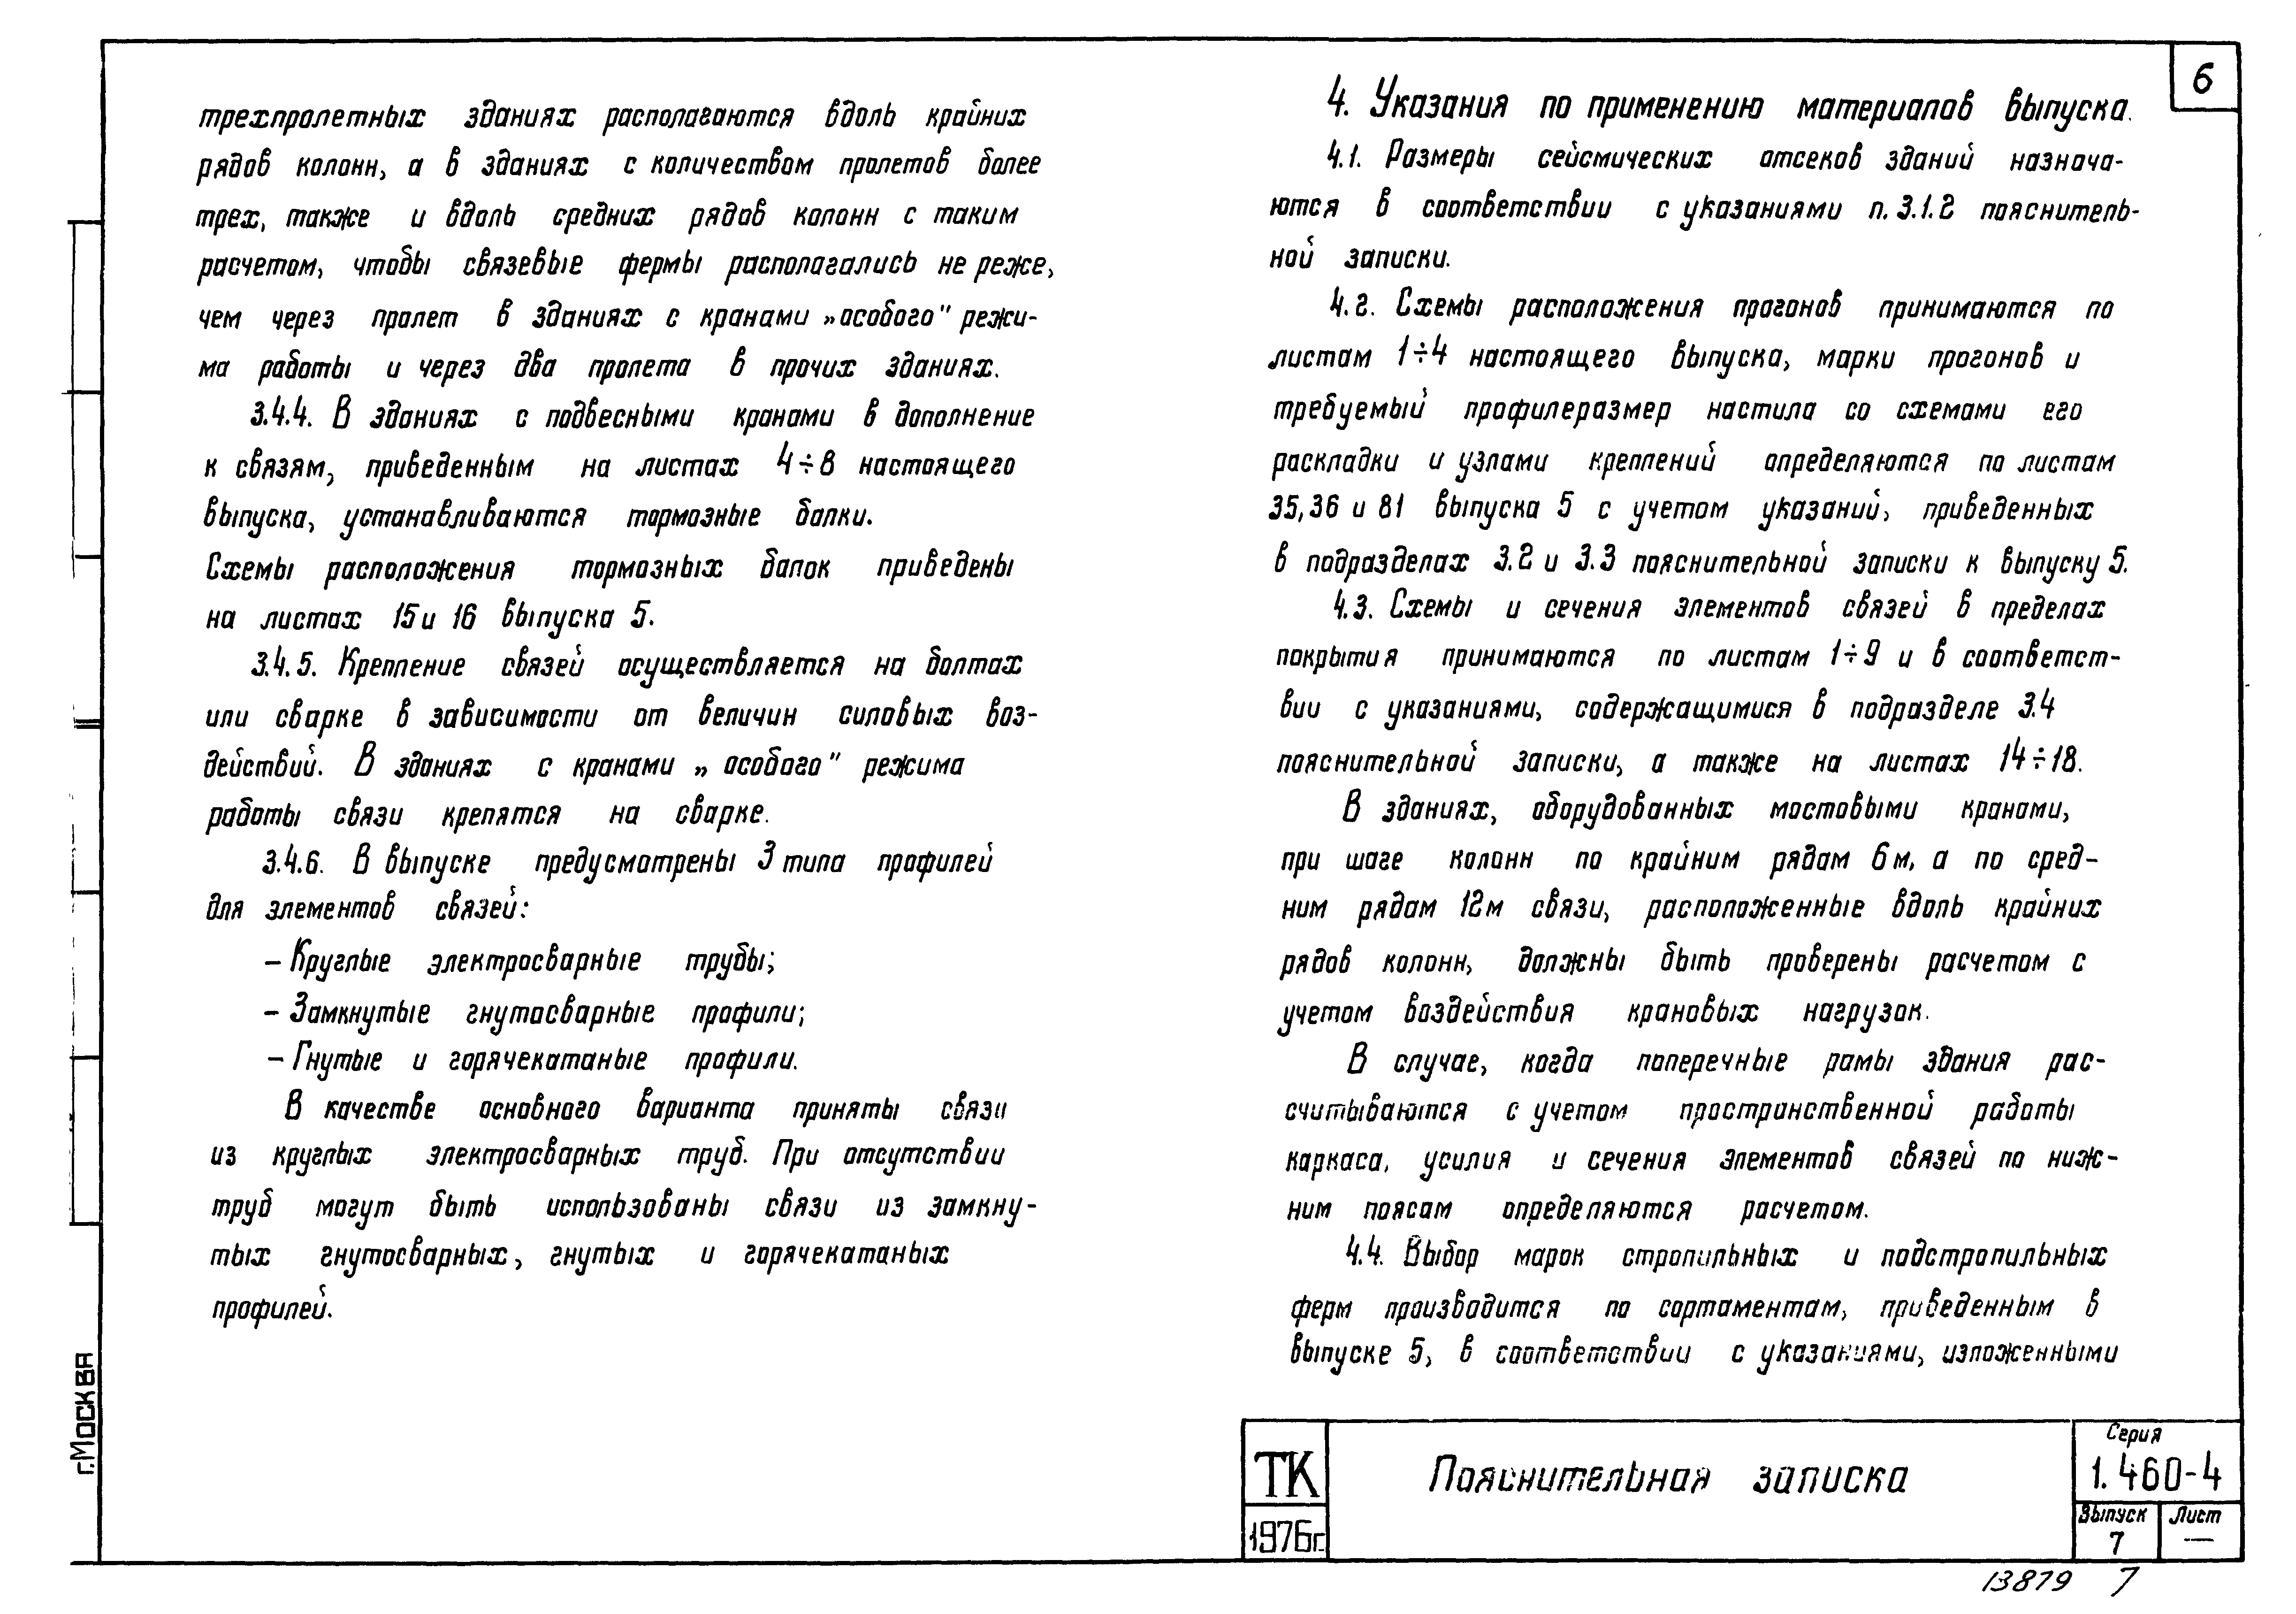 6
трехпролетных зданиях располагаются вдоль крайних
рядов колонн, а в зданиях с количеством пролетов более
трех, также и вдоль средних рядов колонн с таким
расчетом, чтобы связевые фермы располагались не реже,
чем через пролет в зданиях с кранами „особого" режи-
ма работы и через два пролета в прочих зданиях.
3.4.4. В зданиях с подвесными кранами в дополнение
к связям, приведенным на листах 4÷8 настоящего
выпуска, устанавливаются тормозные балки.
Схемы расположения тормозных балок приведены
на листах 15 и 16 выпуска 5.
3.4.5. Крепление связей осуществляется на болтах
или сварке в зависимости от величин силовых воз-
действий. В зданиях с кранами „особого" режима
работы связи крепятся на сварке.
3.4.6. В выпуске предусмотрены 3 типа профилей
для элементов связей:
– Круглые электросварные трубы;
– Замкнутые гнутосварные профили;
– Гнутые и горячекатаные профили.
В качестве основного варианта приняты связи
из круглых электросварных труб. При отсутствии
труб могут быть использованы связи из замкну-
тых гнутосварных, гнутых и горячекатаных
профилей.
4. Указания по применению материалов выпуска.
4.1. Размеры сейсмических отсеков зданий назнача-
ются в соответствии с указаниями п. 3.1.2 пояснитель-
ной записки.
4.2. Схемы расположения прогонов принимаются по
листам 1÷4 настоящего выпуска, марки прогонов и
требуемый профилеразмер настила со схемами его
раскладки и узлами креплений определяются по листам
35, 36 и 81 выпуска 5 с учетом указаний, приведенных
в подразделах 3.2 и 3.3 пояснительной записки к выпуску 5.
4.3. Схемы и сечения элементов связей в пределах
покрытия принимаются по листам 1÷9 и в соответст-
вии с указаниями, содержащимися в подразделе 3.4
пояснительной записки, а также на листах 14÷18.
В зданиях, оборудованных мостовыми кранами,
при шаге колонн по крайним рядам 6м, а по сред-
ним рядам 12м связи, расположенные вдоль крайних
рядов колонн, должны быть проверены расчетом с
учетом воздействия крановых нагрузок.
В случае, когда поперечные рамы здания рас-
считываются с учетом пространственной работы
каркаса, усилия и сечения элементов связей по ниж-
ним поясам определяются расчетом.
4.4. Выбор марок стропильных и подстропильных
ферм производится по сортаментам, приведенным в
выпуске 5, в соответствии с указаниями, изложенными
г. Москва
ТК
1976г.
Пояснительная записка
Серия
1.460-4
Выпуск Лист
7 —
13879 7